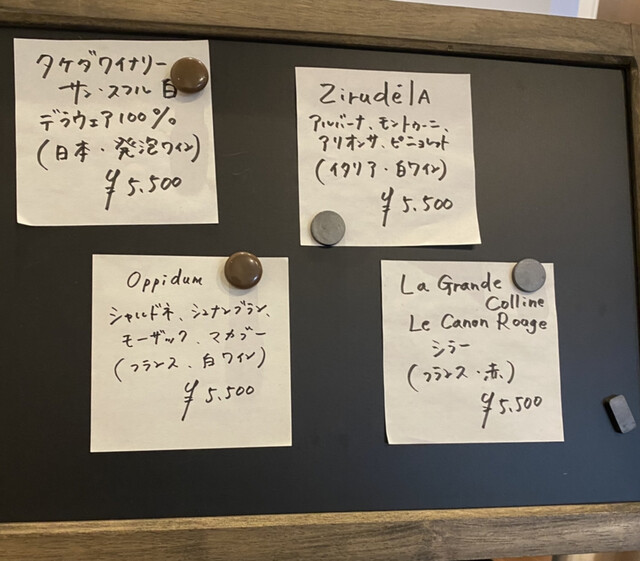 タケダワイナリー
サン・スフル 白
デラウェア100%
(日本・発泡ワイン)
¥5.500
ZirudélA
アルバーナ、モントゥーニ、
アリオンサ、ピニョレット
(イタリア・白ワイン)
¥5.500
Oppidum
シャルドネ、シュナンブラン、
モーザック、マカブー
(フランス、白ワイン)
¥5.500
La Grande
Colline
Le Canon Rouge
シラー
(フランス・赤)
¥5.500